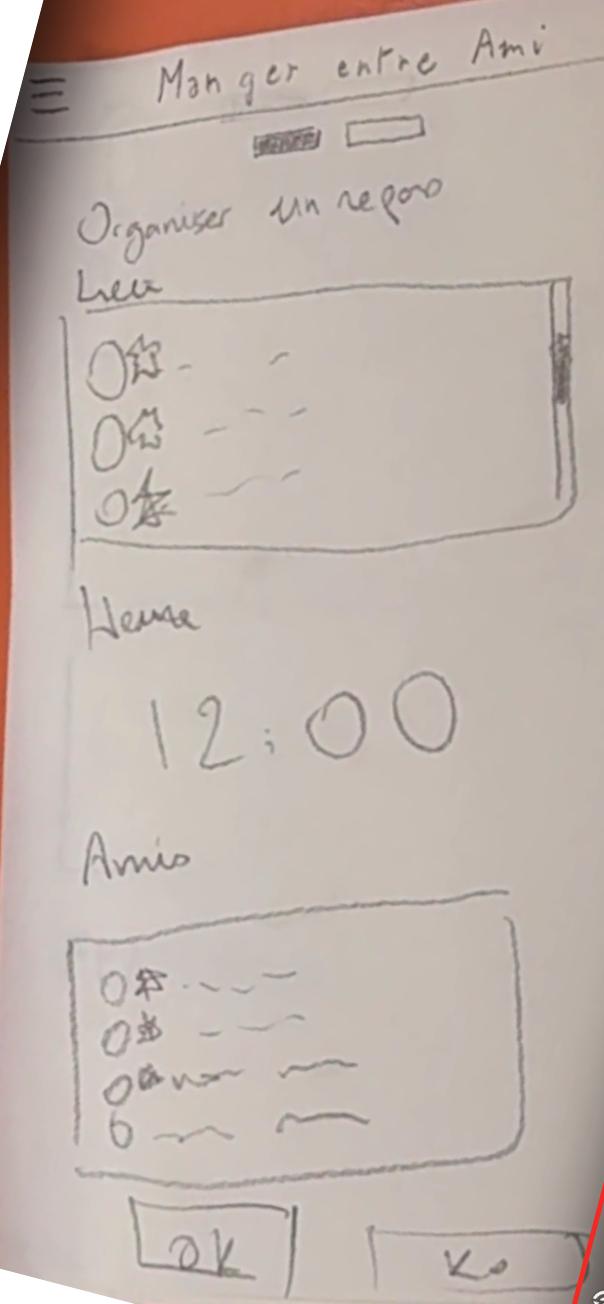 Manger entre Ami
Organiser un repas
Lieu
Heure
12:00
Amis
OK
Ko